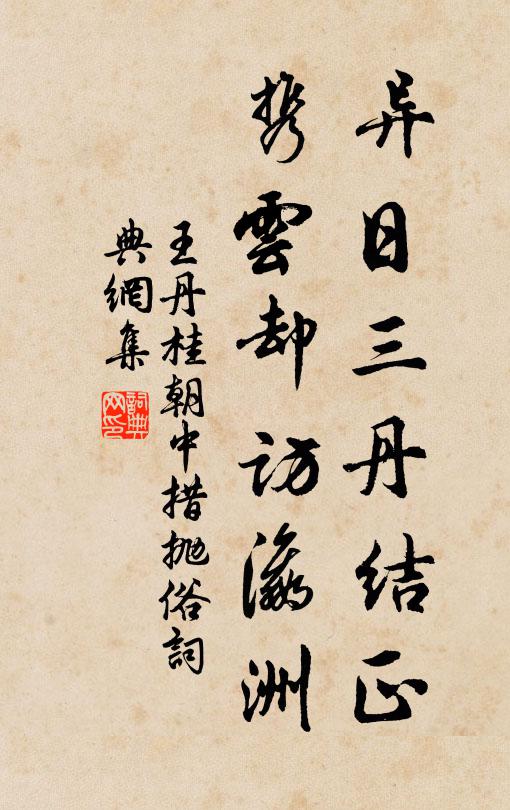 异日三丹结正
携雲却访瀛洲
王丹桂朝中措抛俗詞
典網集
詞典网印